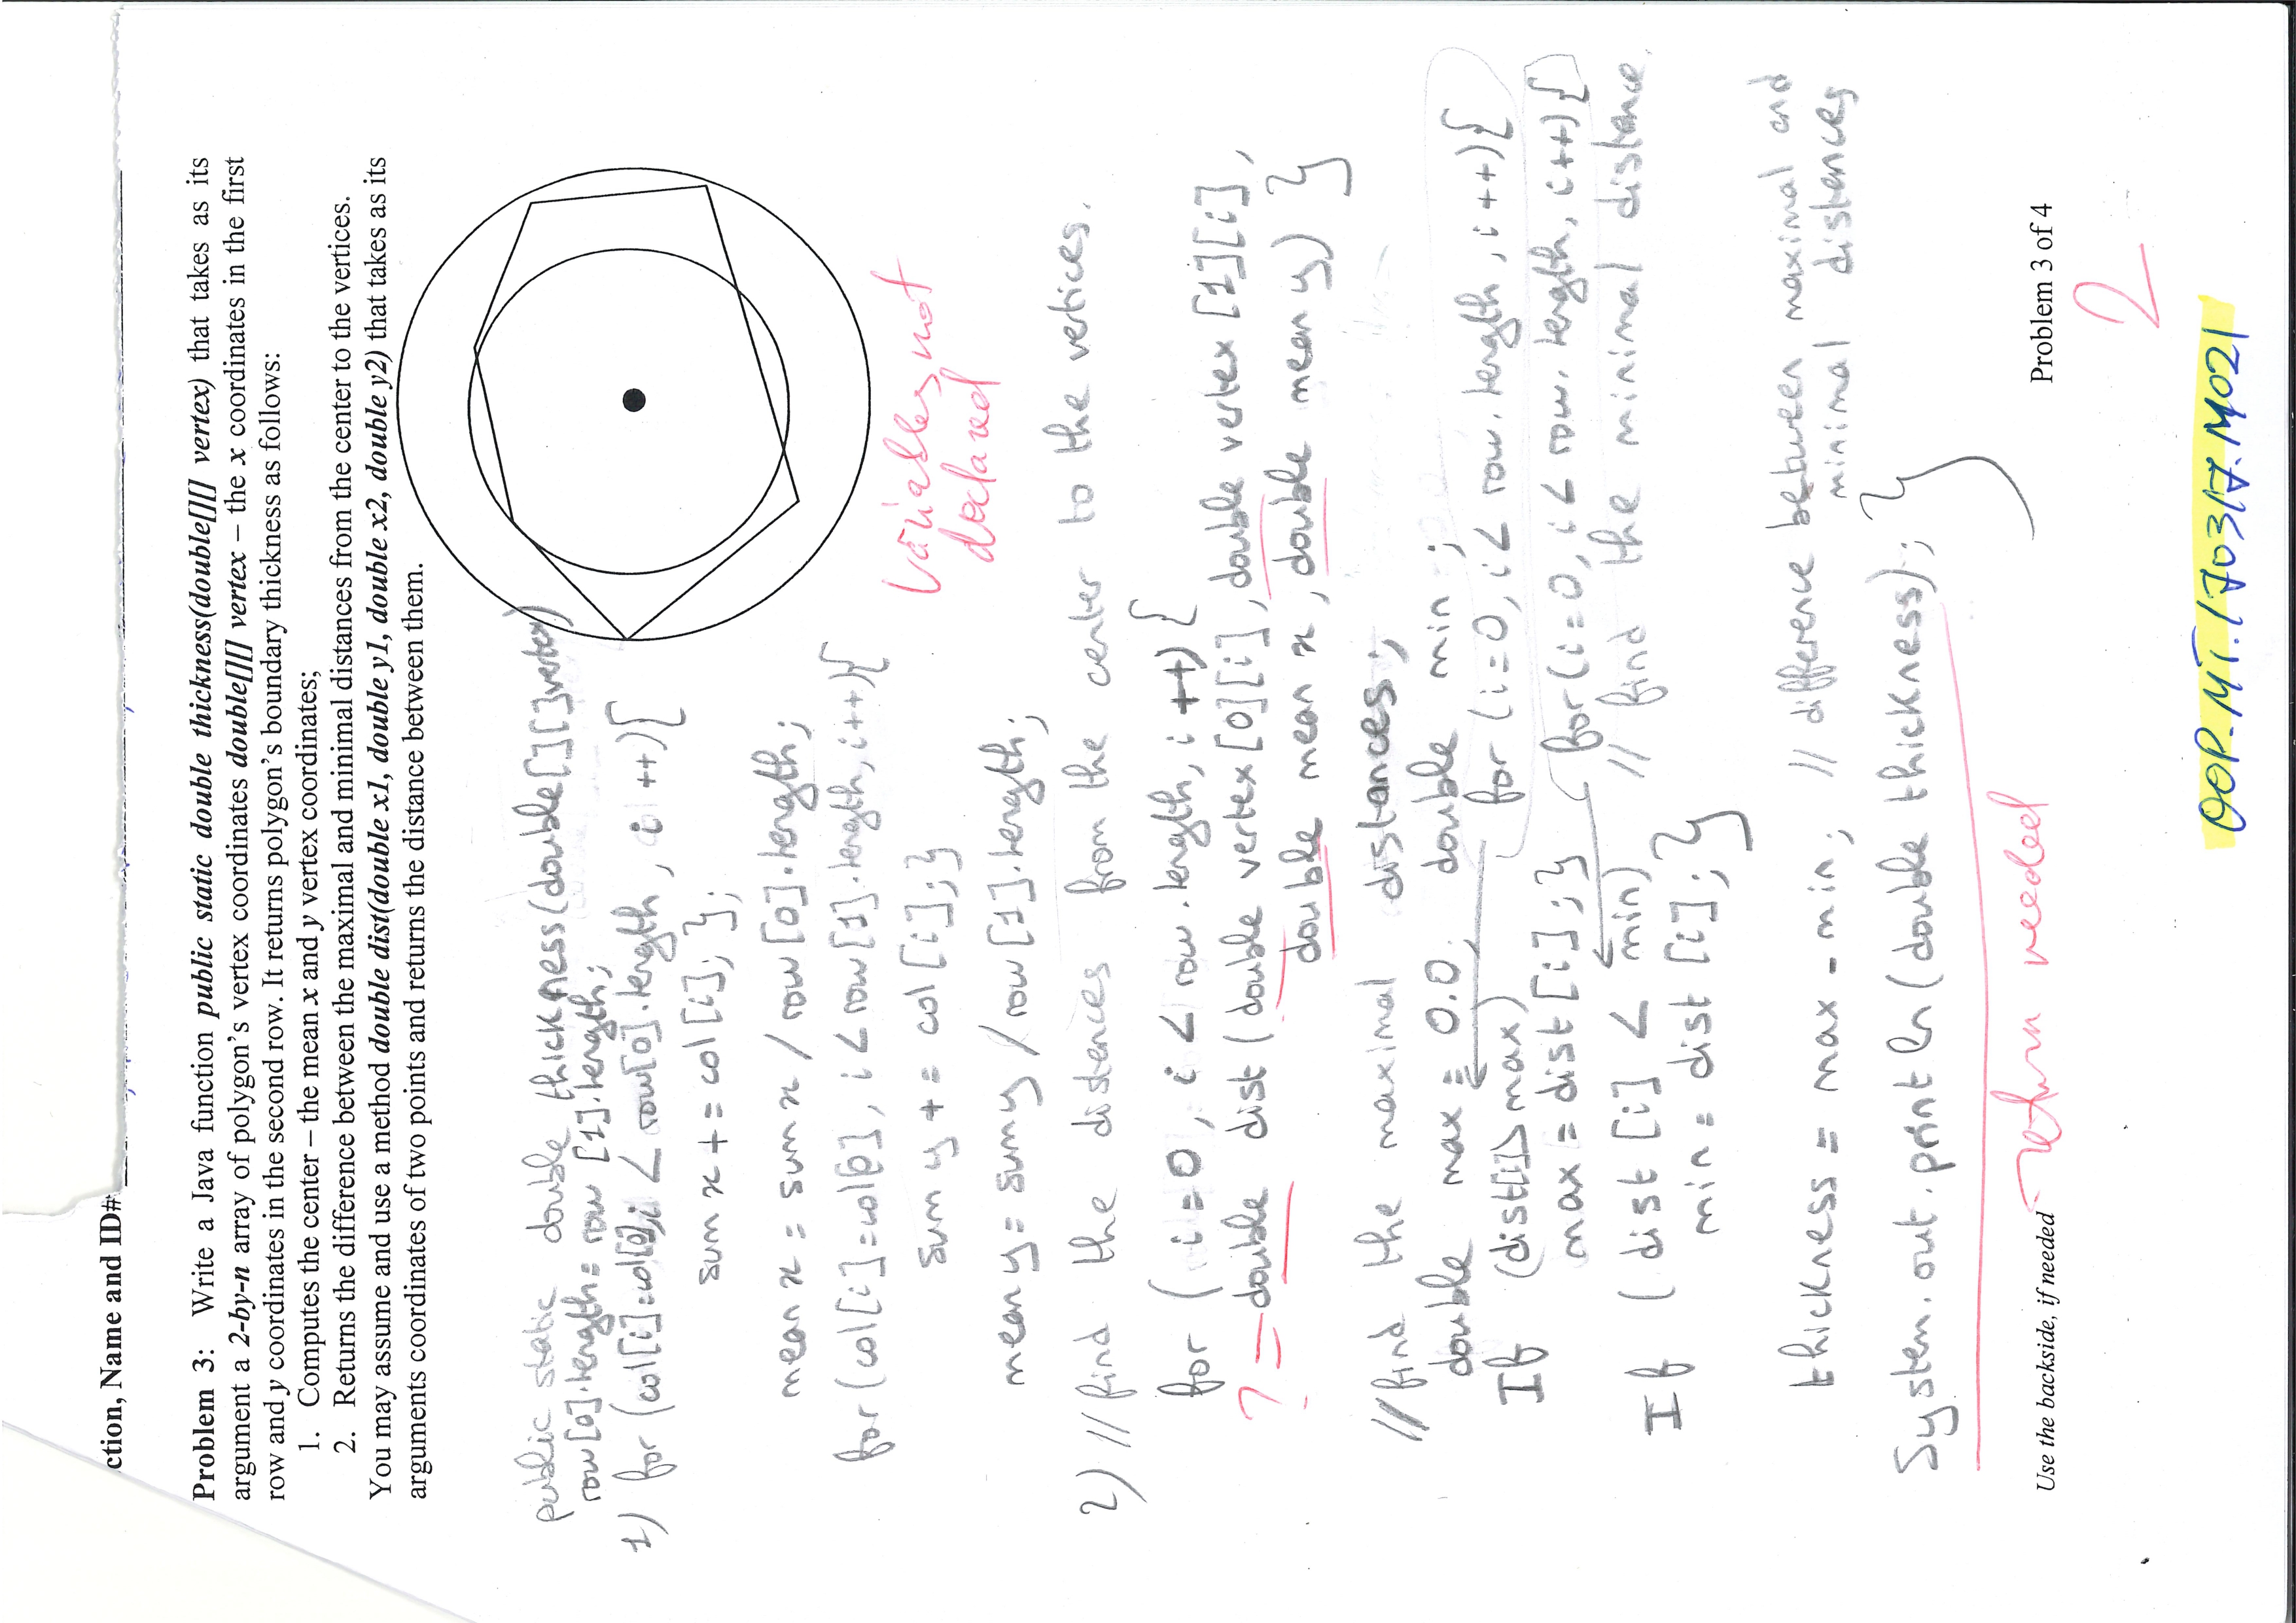 ction, Name and ID#
Problem 3: Write a Java function public static double thickness(double[][] vertex) that takes as its
argument a 2-by-n array of polygon's vertex coordinates double[][] vertex – the x coordinates in the first
row and y coordinates in the second row. It returns polygon's boundary thickness as follows:
1. Computes the center – the mean x and y vertex coordinates;
2. Returns the difference between the maximal and minimal distances from the center to the vertices.
You may assume and use a method double dist(double x1, double y1, double x2, double y2) that takes as its
arguments coordinates of two points and returns the distance between them.
public static double thickness(double[][]vertex)
row[0].length = row [1].length;
1) for (col[i]=col[0],i < row[0].length, i ++){
sum x += col[i]; };
mean x = sum x / row[0].length;
for (col[i]=col[0], i < row[1].length, i++){
sum y += col[i];}
Variables not
declared
mean y = sum y / row[1].length;
2) // find the distences from the center to the vertices.
for ( i = 0, i < row.length, i ++) {
? = double dist (double vertex[0][i], double vertex [1][i],
double mean x, double mean y) }
// find the maximal distances;
double max = 0.0; double min ;
for (i=0, i < row.length, i ++){
If (dist[i]> max)
max = dist [i];}
for(i=0, i < row.length, i++){
If ( dist [i] < min) // find the minimal distance.
min = dist [i];}
thickness = max - min; // difference between maximal and
minimal distences
System.out.println(double thickness); }
return needed
Use the backside, if needed
Problem 3 of 4
2
OOP.MT.170317.M021